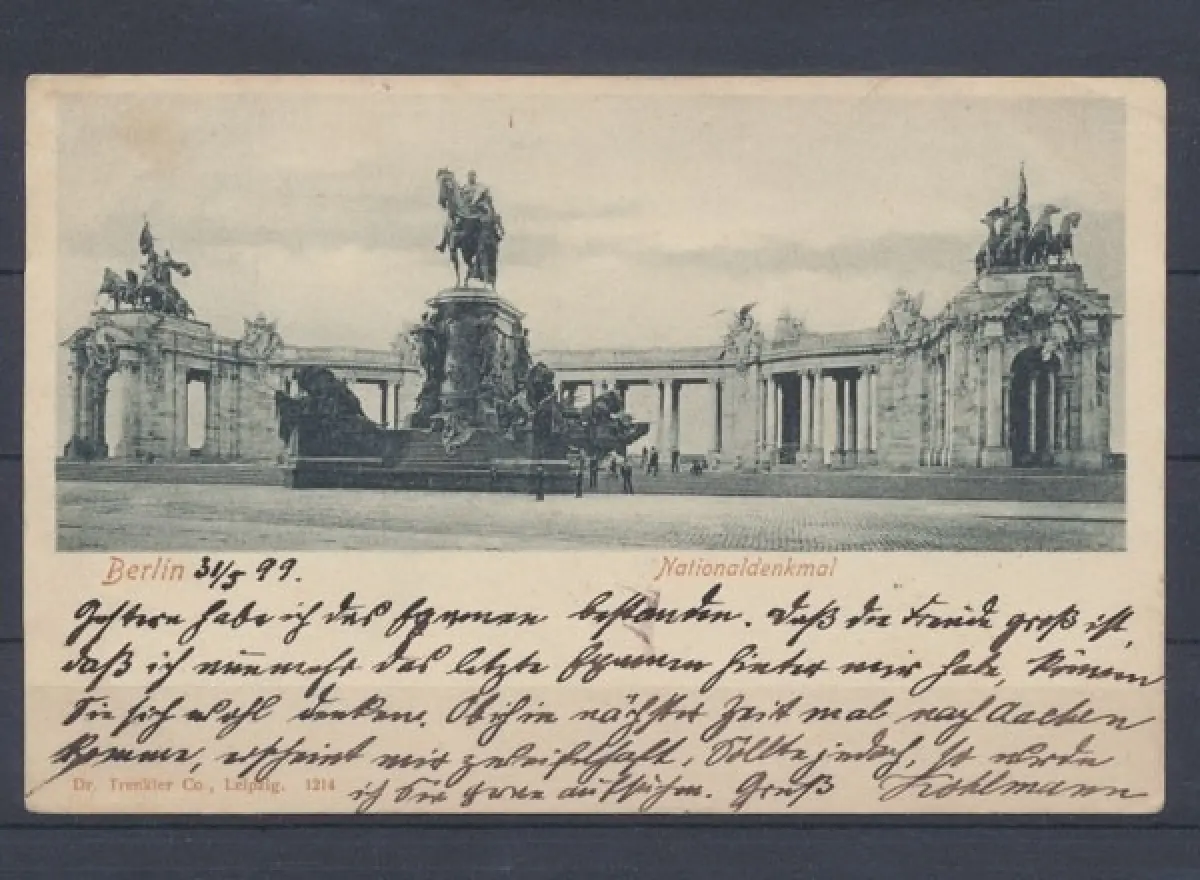 Berlin 31/5 99. Nationaldenkmal
Gestern habe ich das Examen bestanden. Daß die Freude groß ist,
daß ich nunmehr das letzte Examen hinter mir habe, können
Sie sich wohl denken. Ob ich in nächster Zeit mal nach Aachen
komme, erscheint mir zweifelhaft. Sollte jedoch, so werde
Dr. Trenkler Co., Leipzig. 1214 ich Sie gerne aufsuchen. Gruß Kohlmann